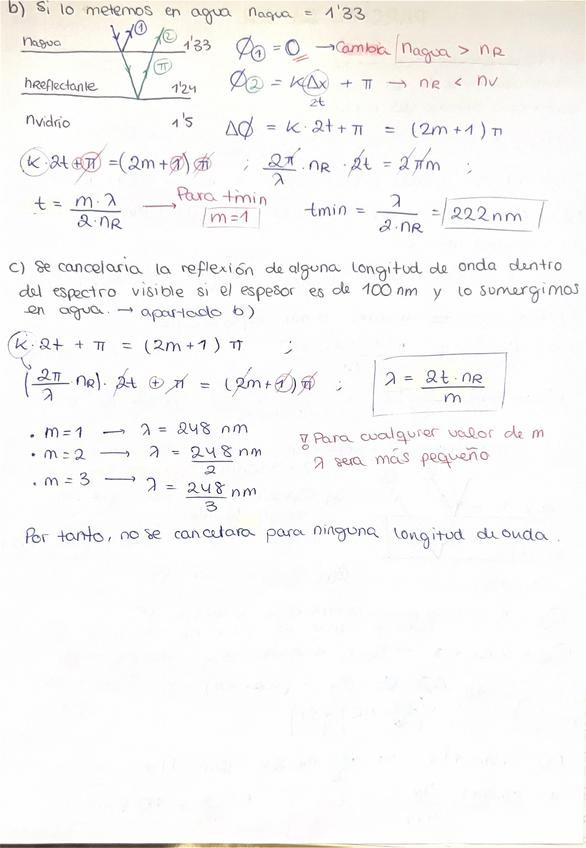 b) Si lo metemos en agua nagua = 1'33
nagua 1'33
① ②
nReflectante 1'24
π
nvidrio 1'5
Ø① = 0 → Cambia nagua > nR
Ø② = KΔx + π → nR < nv
2t
ΔØ = K · 2t + π = (2m+1) π
K · 2t + π = (2m+1) π ; 2π/λ · nR · 2t = 2πm ;
t = m·λ/2·nR → Para tmin m=1 tmin = λ/2·nR = 222nm
c) Se cancelaria la reflexión de alguna longitud de onda dentro
del espectro visible si el espesor es de 100 nm y lo sumergimos
en agua. → apartado b)
K · 2t + π = (2m+1) π ;
(2π/λ nR) · 2t + π = (2m+1) π ; λ = 2t·nR/m
· m=1 → λ = 248 nm
· m=2 → λ = 248/2 nm
· m=3 → λ = 248/3 nm
Para cualquier valor de m
λ sera más pequeño
Por tanto, no se cancelara para ninguna longitud de onda.